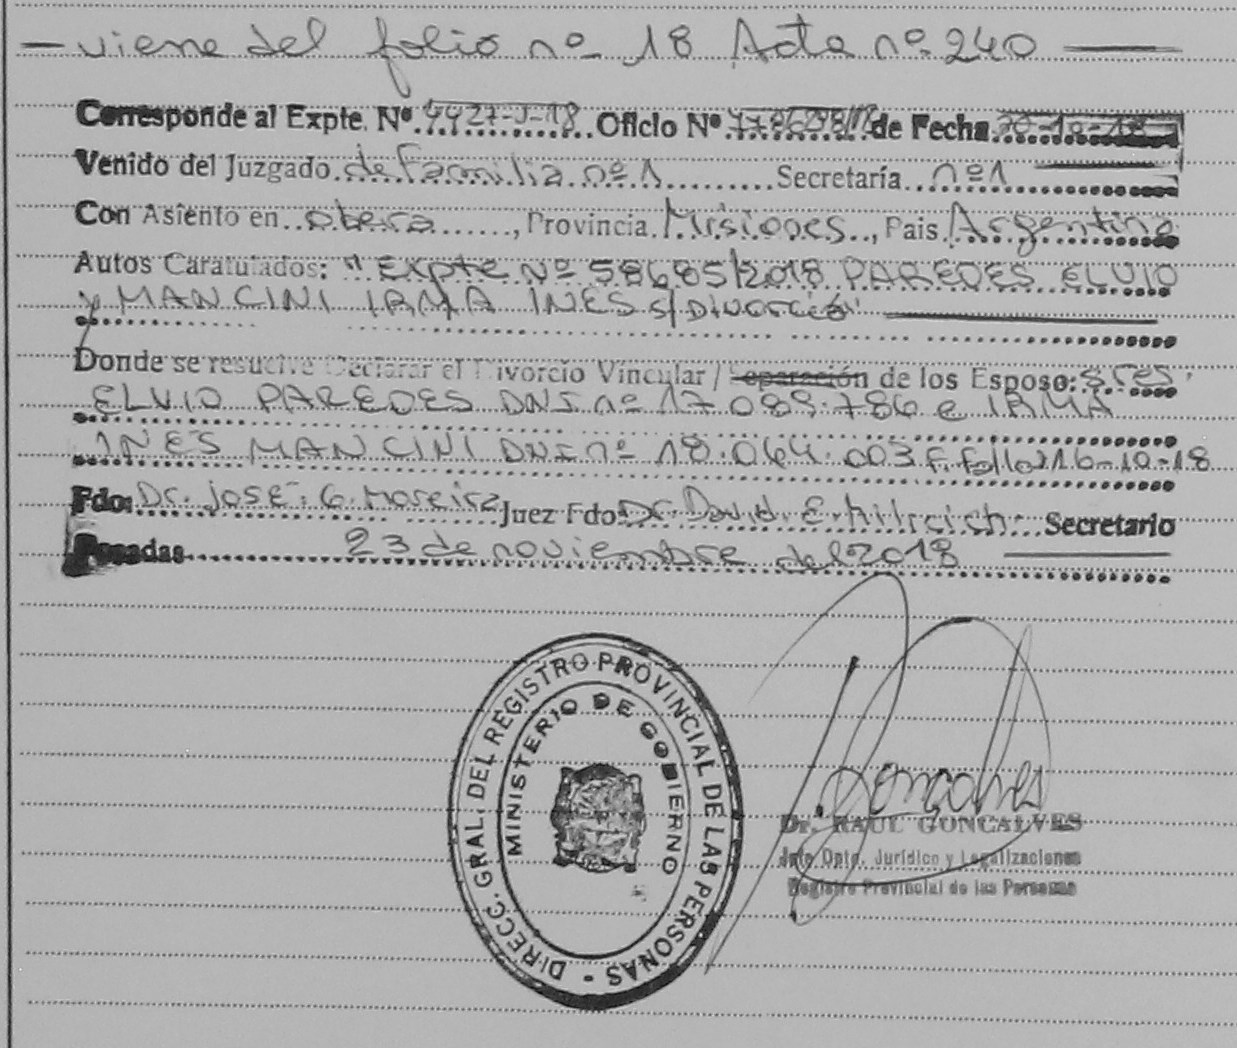 — viene del folio nº 18 Acta nº 240 —
Corresponde al Expte. Nº 4427-J-18 Oficio Nº de Fecha
Venido del Juzgado de Familia nº 1 Secretaría nº 1
Con Asiento en obera, Provincia Misiones, Pais Argentina
Autos Caratulados: "Expte Nº 58685/2018 PAREDES ELVIO
y MANCINI IRMA INES s/Divorcio"
Donde se resuelve Declarar el Divorcio Vincular / Separación de los Esposo: sres.
ELVIO PAREDES DNI nº 17.089.786 e IRMA
INES MANCINI DNI nº 18.064.003 F. Fallo 16-10-18
Fdo: Dr. José G. Moreira Juez Fdo: Dr. David E. Secretario
Posadas 23 de noviembre del 2018
DIRECC. GRAL. DEL REGISTRO PROVINCIAL DE LAS PERSONAS -
MINISTERIO DE GOBIERNO
Gonçalves
Dr. RAUL GONCALVES
Jefe Dpto. Jurídico y Legalizaciones
Registro Provincial de las Personas